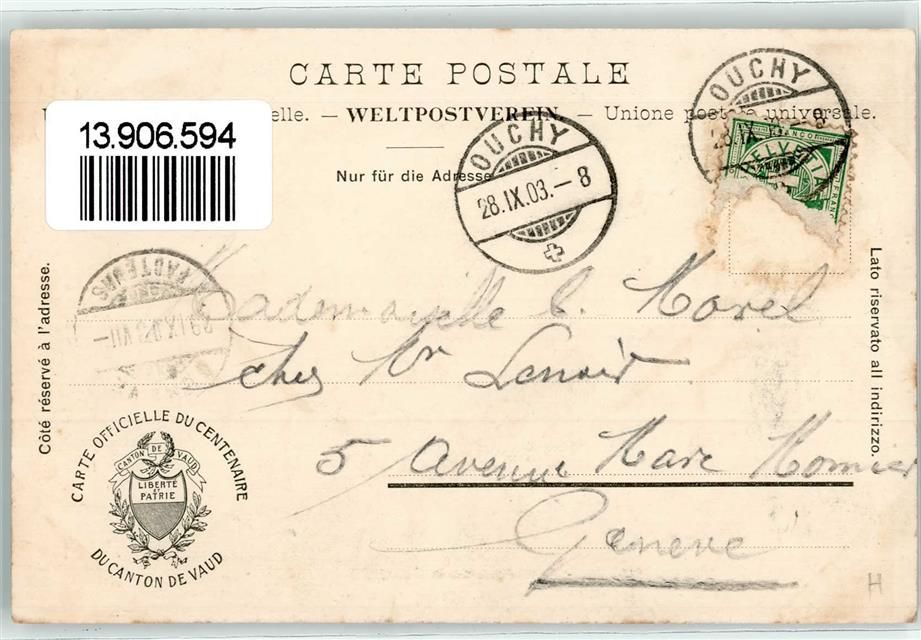 CARTE POSTALE
elle. — WELTPOSTVEREIN. — Unione postale universale.
13.906.594
Nur für die Adresse
OUCHY
28.IX.03.–8
OUCHY
28.IX.03.–8
FRANCO
HELVETIA
FRANCO
Côté réservé à l'adresse.
Lato riservato all indirizzo.
FACTEURS
29.IX.03.VII–
Mademoiselle C. Morel
chez Mr Lenoir
5 Avenue Marc Monnier
Genève
CARTE OFFICIELLE DU CENTENAIRE
CANTON DE VAUD
LIBERTÉ
ET
PATRIE
DU CANTON DE VAUD
H